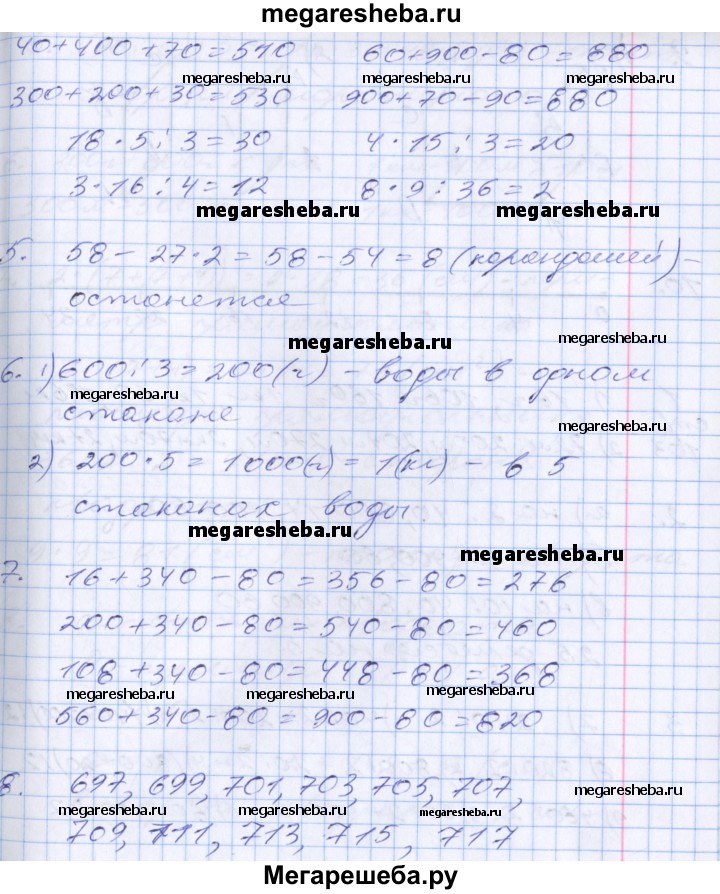 megaresheba.ru
40+400+70=510 60+900-80=880
megaresheba.ru megaresheba.ru megaresheba.ru
300+200+30=530 900+70-90=880
18·5:3=30 4·15:3=20
3·16:4=12 8·9:36=2
megaresheba.ru megaresheba.ru
5. 58-27·2=58-54=8 (карандашей)-
останется
megaresheba.ru megaresheba.ru
6. 1) 600:3=200(г) - воды в одном
megaresheba.ru
стакане
megaresheba.ru
2) 200·5=1000(г)=1(кг) - в 5
стаканах воды.
megaresheba.ru
megaresheba.ru
7. 16+340-80=356-80=276
200+340-80=540-80=460
108+340-80=448-80=368
megaresheba.ru megaresheba.ru megaresheba.ru
560+340-80=900-80=820
8. 697, 699, 701, 703, 705, 707,
megaresheba.ru megaresheba.ru megaresheba.ru megaresheba.ru
709, 711, 713, 715, 717
Мегарешеба.ру